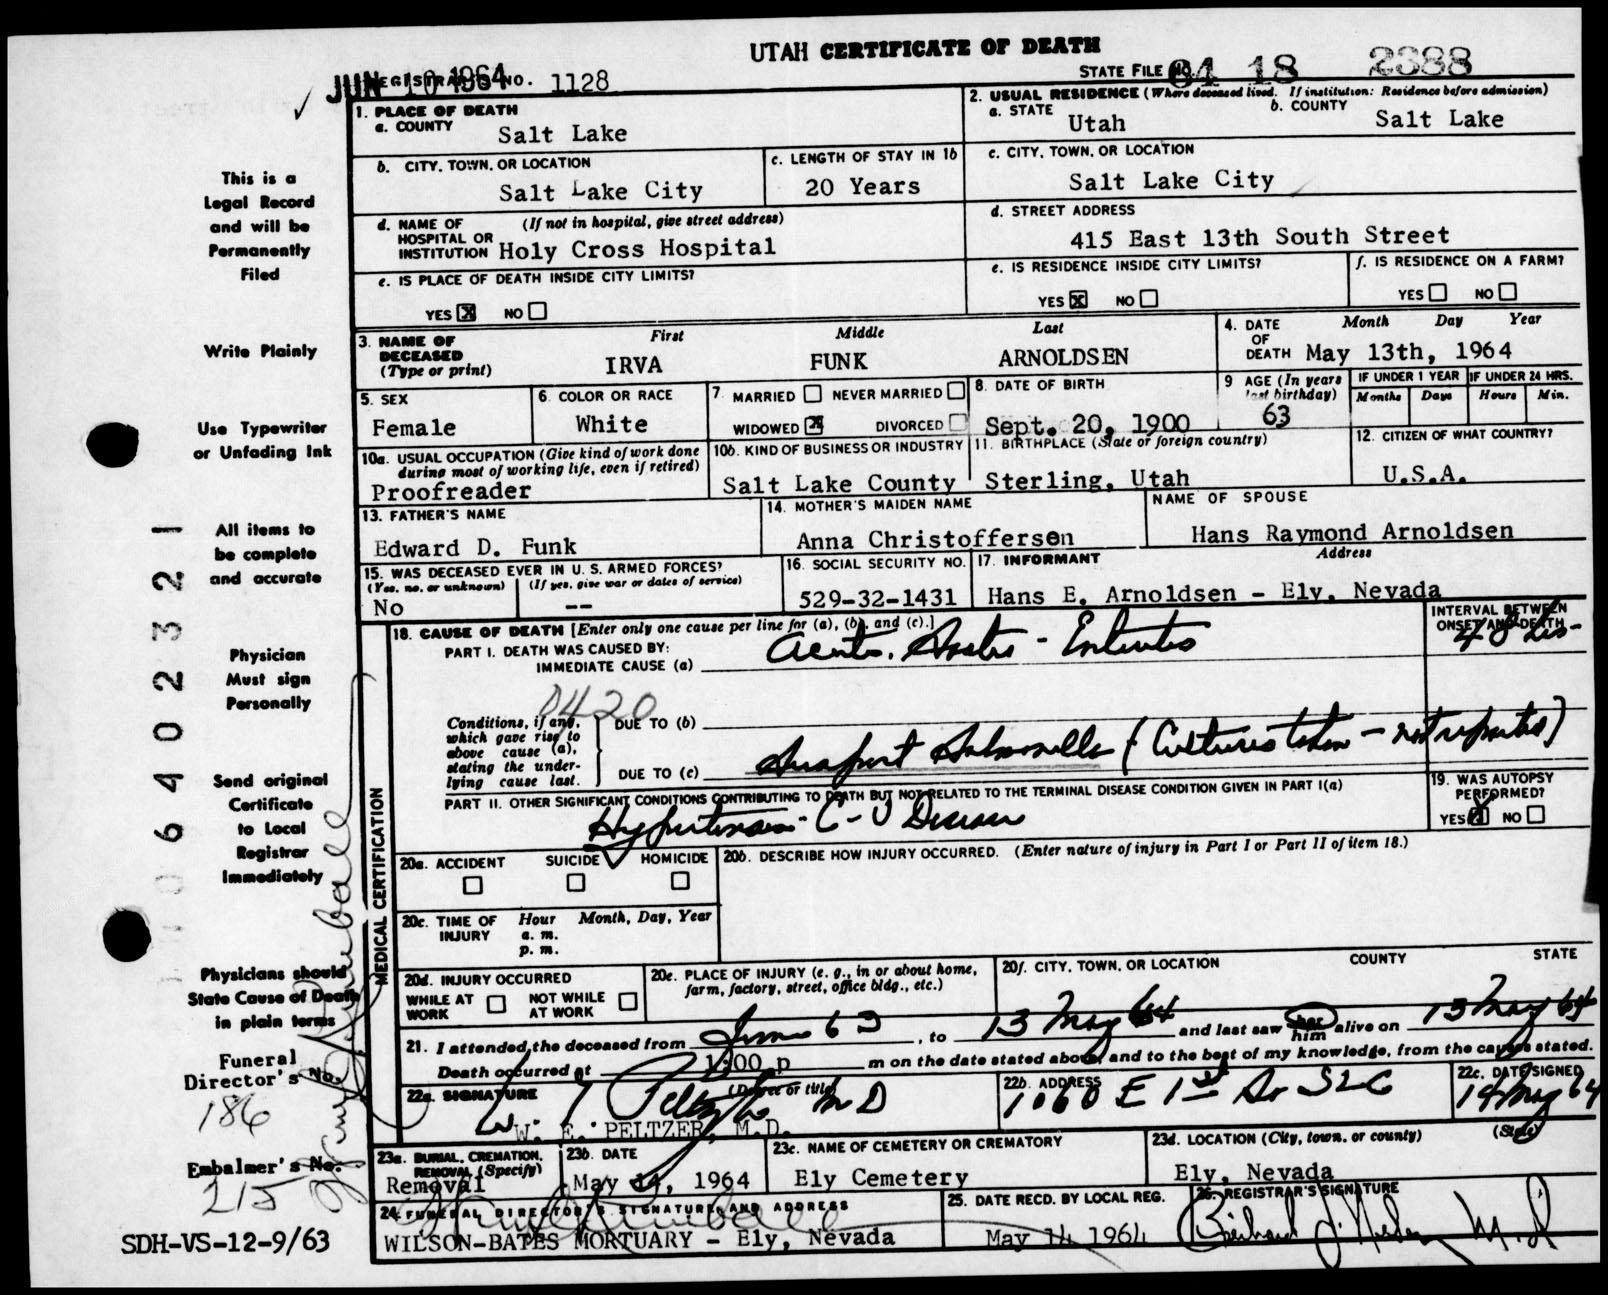 UTAH CERTIFICATE OF DEATH
JUN 10 1964
REGISTRAR'S NO. 1128
STATE FILE NO. 64 18 2388
1. PLACE OF DEATH
a. COUNTY Salt Lake
2. USUAL RESIDENCE (Where deceased lived. If institution: Residence before admission)
a. STATE Utah b. COUNTY Salt Lake
b. CITY, TOWN, OR LOCATION Salt Lake City
c. LENGTH OF STAY IN 1b 20 Years
c. CITY, TOWN, OR LOCATION Salt Lake City
d. NAME OF HOSPITAL OR INSTITUTION (If not in hospital, give street address) Holy Cross Hospital
d. STREET ADDRESS 415 East 13th South Street
e. IS PLACE OF DEATH INSIDE CITY LIMITS?
YES X NO
e. IS RESIDENCE INSIDE CITY LIMITS?
YES X NO
f. IS RESIDENCE ON A FARM?
YES NO
3. NAME OF DECEASED (Type or print)
First Middle Last
IRVA FUNK ARNOLDSEN
4. DATE OF DEATH Month Day Year
May 13th, 1964
5. SEX Female
6. COLOR OR RACE White
7. MARRIED NEVER MARRIED
WIDOWED X DIVORCED
8. DATE OF BIRTH Sept. 20, 1900
9 AGE (In years last birthday) 63
IF UNDER 1 YEAR Months Days
IF UNDER 24 HRS. Hours Min.
10a. USUAL OCCUPATION (Give kind of work done during most of working life, even if retired)
Proofreader
10b. KIND OF BUSINESS OR INDUSTRY
Salt Lake County
11. BIRTHPLACE (State or foreign country)
Sterling, Utah
12. CITIZEN OF WHAT COUNTRY?
U.S.A.
13. FATHER'S NAME
Edward D. Funk
14. MOTHER'S MAIDEN NAME
Anna Christoffersen
NAME OF SPOUSE
Hans Raymond Arnoldsen
15. WAS DECEASED EVER IN U. S. ARMED FORCES?
(Yes, no, or unknown) (If yes, give war or dates of service)
No --
16. SOCIAL SECURITY NO.
529-32-1431
17. INFORMANT Address
Hans E. Arnoldsen - Ely, Nevada
18. CAUSE OF DEATH [Enter only one cause per line for (a), (b), and (c).]
INTERVAL BETWEEN ONSET AND DEATH
PART I. DEATH WAS CAUSED BY:
IMMEDIATE CAUSE (a) Acute Gastro - Enteritis 48 hrs-
0420
Conditions, if any, which gave rise to above cause (a), stating the underlying cause last.
DUE TO (b)
DUE TO (c) Suspect Salmonella (Cultures taken - not reported)
PART II. OTHER SIGNIFICANT CONDITIONS CONTRIBUTING TO DEATH BUT NOT RELATED TO THE TERMINAL DISEASE CONDITION GIVEN IN PART I(a)
Hypertensive C-V Disease
19. WAS AUTOPSY PERFORMED?
YES X NO
20a. ACCIDENT SUICIDE HOMICIDE
20b. DESCRIBE HOW INJURY OCCURRED. (Enter nature of injury in Part I or Part II of item 18.)
20c. TIME OF INJURY Hour Month, Day, Year
a. m.
p. m.
20d. INJURY OCCURRED
WHILE AT WORK NOT WHILE AT WORK
20e. PLACE OF INJURY (e. g., in or about home, farm, factory, street, office bldg., etc.)
20f. CITY, TOWN, OR LOCATION COUNTY STATE
21. I attended the deceased from June 63, to 13 May 64 and last saw her him alive on 13 May 64
Death occurred at 1:00 p m on the date stated above, and to the best of my knowledge, from the causes stated.
22a. SIGNATURE (Degree or title) W E Peltzer MD
W. E. PELTZER, M.D.
22b. ADDRESS 1060 E 1st So SLC
22c. DATE SIGNED 14 May 64
23a. BURIAL, CREMATION, REMOVAL (Specify)
Removal
23b. DATE
May 14, 1964
23c. NAME OF CEMETERY OR CREMATORY
Ely Cemetery
23d. LOCATION (City, town, or county) (State)
Ely, Nevada
24. FUNERAL DIRECTOR'S SIGNATURE AND ADDRESS
WILSON-BATES MORTUARY - Ely, Nevada
25. DATE RECD. BY LOCAL REG.
May 14 1964
26. REGISTRAR'S SIGNATURE
M.D.
MEDICAL CERTIFICATION
This is a
Legal Record
and will be
Permanently
Filed
Write Plainly
Use Typewriter
or Unfading Ink
All items to
be complete
and accurate
Physician
Must sign
Personally
Send original
Certificate
to Local
Registrar
Immediately
Physicians should
State Cause of Death
in plain terms
Funeral
Director's No.
186
Embalmer's No.
215
SDH-VS-12-9/63
0640232 1